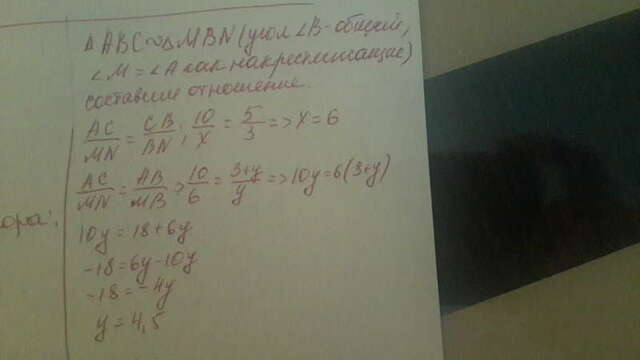 △ABC ~ △MBN (угол ∠B - общий,
∠M = ∠A как накрест лежащие)
составим отношение.
AC/MN = CB/BN; 10/x = 5/3 => x = 6
AC/MN = AB/MB => 10/6 = 3+y/y => 10y = 6(3+y)
10y = 18+6y
-18 = 6y-10y
-18 = -4y
y = 4,5